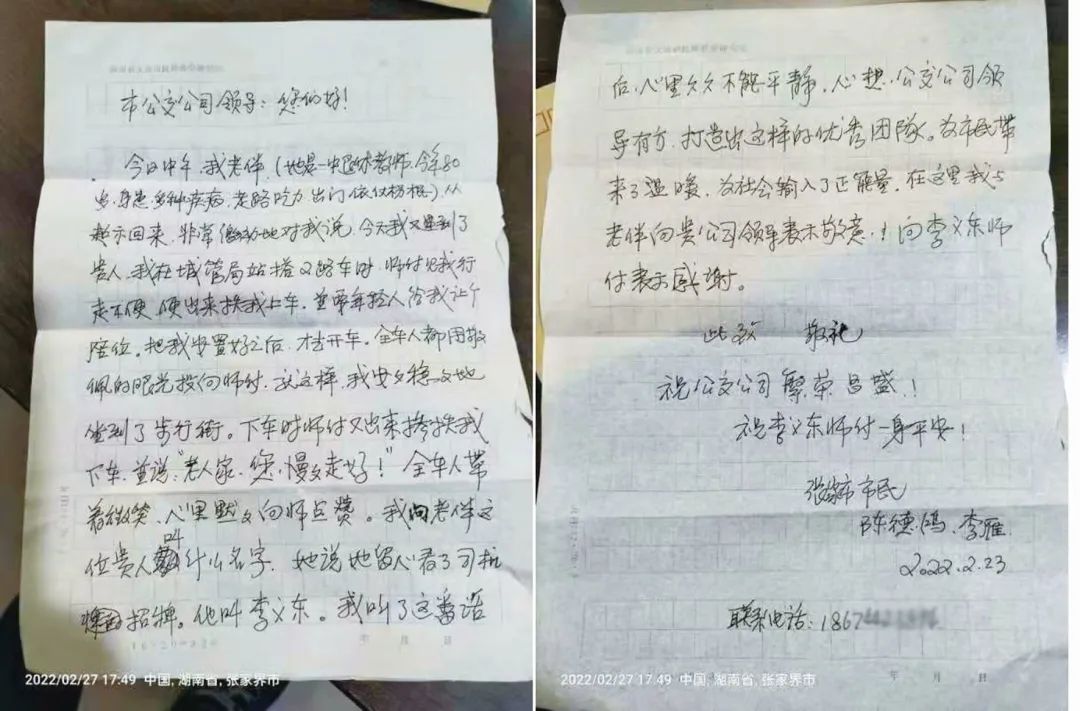 市公交公司领导：您们好！
今日中午，我老伴（她是一中退休教师，今年80
岁，身患多种疾病，走路吃力，出门依仗杨棍），从
超市回来，非常激动地对我说，今天我又遇到了
贵人，我在城管局站搭2路车时，师付见我行
走不便，便出来扶我上车，并要年轻人给我让个
陪位。把我安置好之后，才去开车。全车人都用敬
佩的眼光投向师付，就这样，我安安稳稳地
坐到了步行街。下车时师付又出来搀扶我
下车，并说："老人家，您慢慢走好！"全车人带
着微笑，心里默默向师点赞。我问老伴这
位贵人叫什么名字，她说她留心看了司机
招牌。他叫李义东。我叫了这番话
16×20=320
年 月 日
2022/02/27 17:49 中国, 湖南省, 张家界市
后，心里久久不能平静，心想，公交公司领
导有方，打造出这样的优秀团队。为市民带
来了温暖，为社会输入了正能量。在这里我与
老伴向贵公司领导表示敬意！向李义东师
付表示感谢。
此致 敬礼
祝公交公司繁荣昌盛！
祝李义东师付一身平安！
张家界市民
陈德鸿、李雁
2022.2.23
联系电话：1867
年 月 日
2022/02/27 17:49 中国, 湖南省, 张家界市